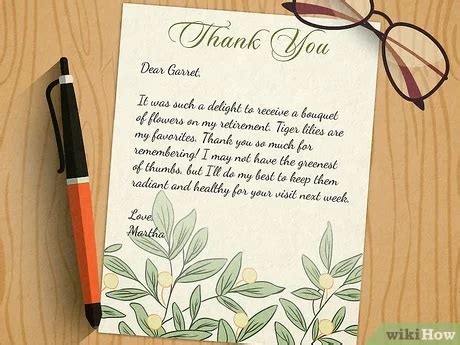 Thank You
Dear Garret,
It was such a delight to receive a bouquet
of flowers on my retirement. Tiger lilies are
my favorites. Thank you so much for
remembering! I may not have the greenest
of thumbs, but I'll do my best to keep them
radiant and healthy for your visit next week.
Love,
Martha
wikiHow